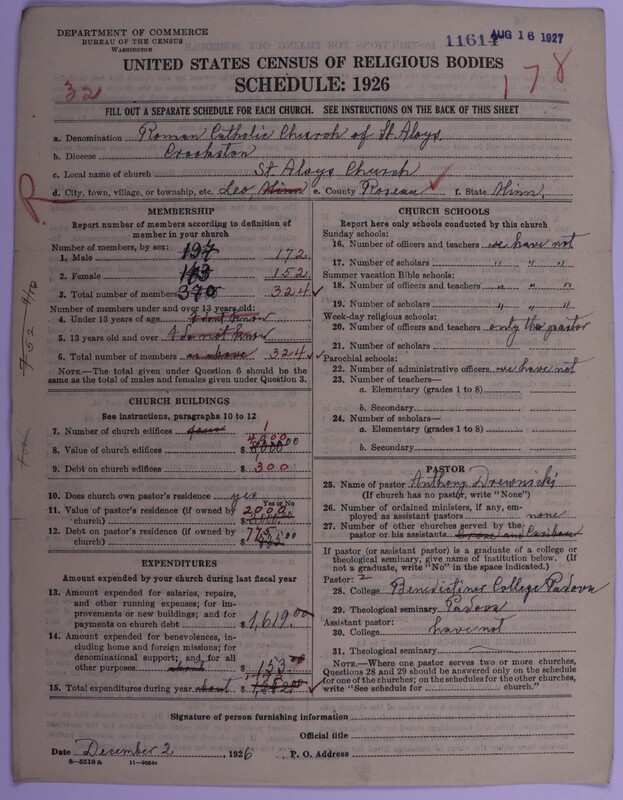 DEPARTMENT OF COMMERCE
BUREAU OF THE CENSUS
WASHINGTON
11614 AUG 16 1927
UNITED STATES CENSUS OF RELIGIOUS BODIES
SCHEDULE: 1926
32
178
FILL OUT A SEPARATE SCHEDULE FOR EACH CHURCH. SEE INSTRUCTIONS ON THE BACK OF THIS SHEET
a. Denomination Roman Catholic Church of St. Aloys
b. Diocese Crookston
c. Local name of church St Aloys Church
d. City, town, village, or township, etc. Leo, Minn e. County Roseau f. State Minn,
R
MEMBERSHIP
Report number of members according to definition of member in your church
Number of members, by sex:
1. Male 197 172
2. Female 152
3. Total number of members 370 324
Number of members under and over 13 years old:
4. Under 13 years of age I dont know
5. 13 years old and over I do not know
6. Total number of members as above 324
NOTE.—The total given under Question 6 should be
the same as the total of males and females given under Question 3.
CHURCH BUILDINGS
See instructions, paragraphs 10 to 12
7. Number of church edifices 1
8. Value of church edifices $ 4000
9. Debt on church edifices $ 300
10. Does church own pastor's residence yes
Yes or No
11. Value of pastor's residence (if owned by
church) $ 2000
12. Debt on pastor's residence (if owned by
church) $ 775
EXPENDITURES
Amount expended by your church during last fiscal year
13. Amount expended for salaries, repairs,
and other running expenses; for im-
provements or new buildings; and for
payments on church debt $ 1,619.00
14. Amount expended for benevolences,
including home and foreign missions; for
denominational support; and for all
other purposes about $ 153.00
15. Total expenditures during year about $
CHURCH SCHOOLS
Report here only schools conducted by this church
Sunday schools:
16. Number of officers and teachers we have not
17. Number of scholars " " "
Summer vacation Bible schools:
18. Number of officers and teachers " " "
19. Number of scholars " " "
Week-day religious schools:
20. Number of officers and teachers only the pastor
21. Number of scholars
Parochial schools:
22. Number of administrative officers we have not
23. Number of teachers—
a. Elementary (grades 1 to 8)
b. Secondary
24. Number of scholars—
a. Elementary (grades 1 to 8)
b. Secondary
PASTOR
25. Name of pastor Anthony Drewnicki
(If church has no pastor, write "None")
26. Number of ordained ministers, if any, em-
ployed as assistant pastors none
27. Number of other churches served by the
pastor or his assistants
If pastor (or assistant pastor) is a graduate of a college or
theological seminary, give name of institution below. (If
not a graduate, write "No" in the space indicated.)
Pastor: 2
28. College Benedictiner College Padova
29. Theological seminary Padova
Assistant pastor:
30. College have not
31. Theological seminary
NOTE.—Where one pastor serves two or more churches,
Questions 28 and 29 should be answered only on the schedule
for one of the churches; on the schedules for the other churches,
write "See schedule for church."
Signature of person furnishing information
Official title
Date December 2, 1926 P. O. Address
8-5518a 11-9034